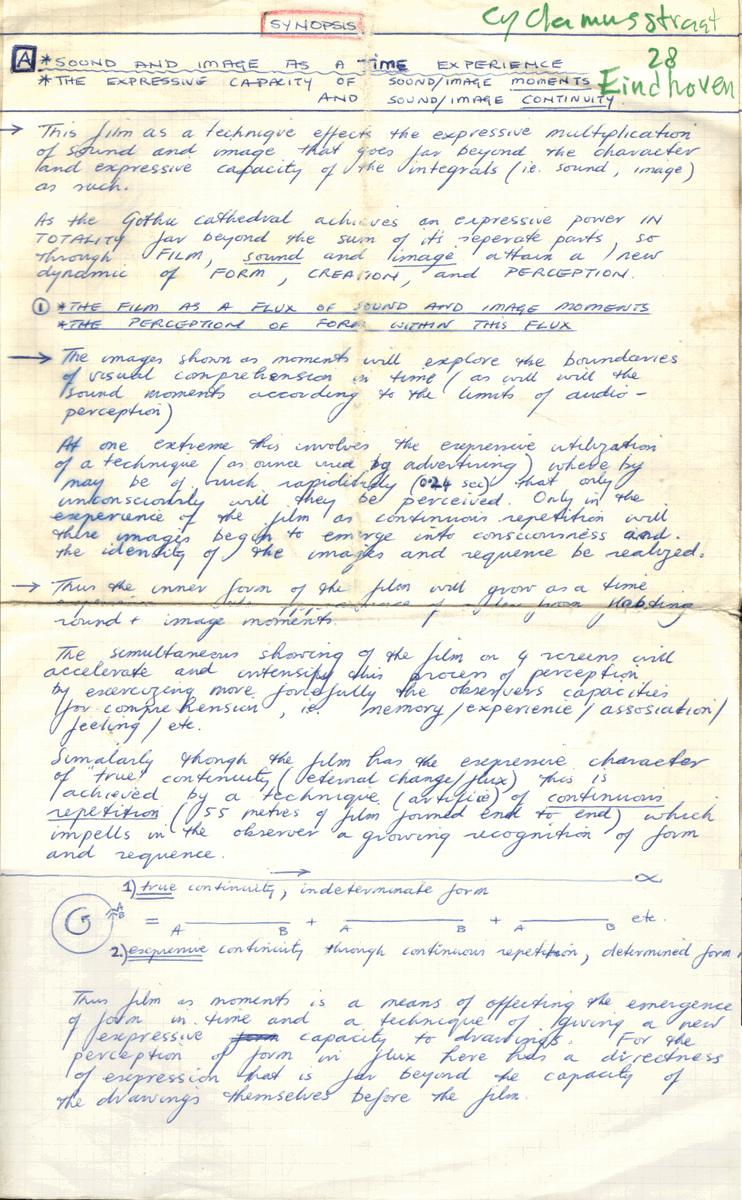 SYNOPSIS
Cyclamusstraat
28
Eindhoven
A * SOUND AND IMAGE AS A TIME EXPERIENCE
* THE EXPRESSIVE CAPACITY OF SOUND/IMAGE MOMENTS
AND SOUND/IMAGE CONTINUITY.
→ This film as a technique effects the expressive multiplication
of sound and image that goes far beyond the character
and expressive capacity of the integrals (i.e. sound, image)
as such.
As the Gothic cathedral achieves an expressive power IN
TOTALITY far beyond the sum of its seperate parts, so
through FILM, sound and image attain a new
dynamic of FORM, CREATION, and PERCEPTION.
1 * THE FILM AS A FLUX OF SOUND AND IMAGE MOMENTS
* THE PERCEPTION OF FORM WITHIN THIS FLUX
→ The images shown as moments will explore the boundaries
of visual comprehension in time (as will will the
sound moments according to the limits of audio-
perception)
At one extreme this involves the expressive utilization
of a technique (as ounce used by advertising) where by
may be of such rapiditity (0.24 sec) that only
unconsciously will they be perceived. Only in the
experience of the film as continuous repetition will
these images begin to emerge into consciousness and
the identity of the images and sequence be realized.
→ Thus the inner form of the film will grow as a time
sound + image moments.
The simultaneous showing of the film on 4 screens will
accelerate and intensify this process of perception
by exercizing more forcefully the observers capacities
for comprehension, i.e. memory/experience/assosiation/
feeling/etc.
Simalarly though the film has the expressive character
of "true" continuity (eternal change/flux) this is
achieved by a technique (artifice) of continuous
repetition (55 metres of film joined end to end) which
impells in the observer a growing recognition of form
and sequence.
→ ∝
1) true continuity, indeterminate form
A
B = A B + A B + A B etc.
2) expressive continuity through continuous repetition, determined form
Thus film as moments is a means of affecting the emergence
of form in time and a technique of giving a new
expressive capacity to drawings. For the
perception of form in flux here has a directness
of expression that is far beyond the capacity of
the drawings themselves before the film.